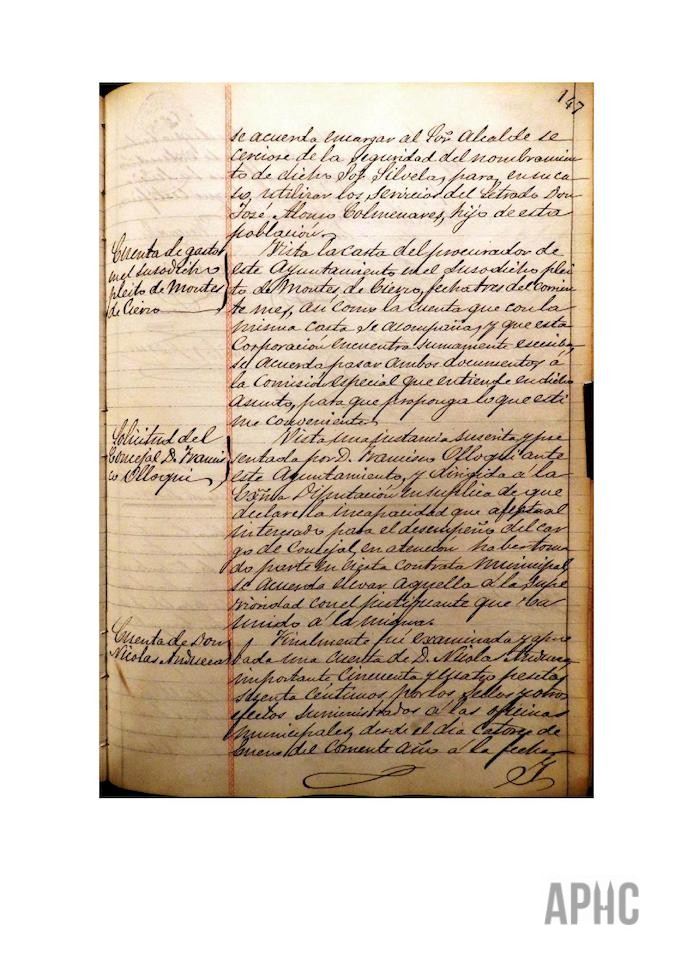 147
se acuerda encargar al Sor. Alcalde se
cerciore de la seguridad del nombramien
to de dicho Sor. Silvela, para, en su ca
so, utilizar los servicios del Letrado Don
José Alonso Colmenares, hijo de esta
población.
Cuenta de gastos
en el susodicho
pleito de Montes
de Cierzo
Vista la carta del procurador de
este Ayuntamiento en el susodicho plei
to de Montes de Cierzo, fecha tres del corrien
te mes, así como la cuenta que con la
misma carta se acompaña, y que esta
Corporación encuentra sumamente
se acuerda pasar ambos documentos á
la Comisión especial que entiende en dicho
asunto, para que proponga lo que esti
me conveniente.
Solicitud del
Concejal D. Francis
co Olloqui
Vista una instancia suscrita y pre
sentada por D. Francisco Olloqui ante
este Ayuntamiento, y dirigida á la
Exma Diputación en súplica de que
declare la incapacidad que afecta al
interesado para el desempeño del car
go de Concejal, en atención haber toma
do parte en cierta contrata municipal,
se acuerda elevar aquella á la Supe
rioridad con el justificante que va
unido á la misma.
Cuenta de Don
Nicolas Andueza
Finalmente fué examinada y apro
bada una cuenta de D. Nicolas Andueza
importante cincuenta y cuatro pesetas
sesenta céntimos, por los sellos y otros
efectos suministrados á las oficinas
municipales, desde el día catorce de
Enero del corriente año á la fecha.
APHC